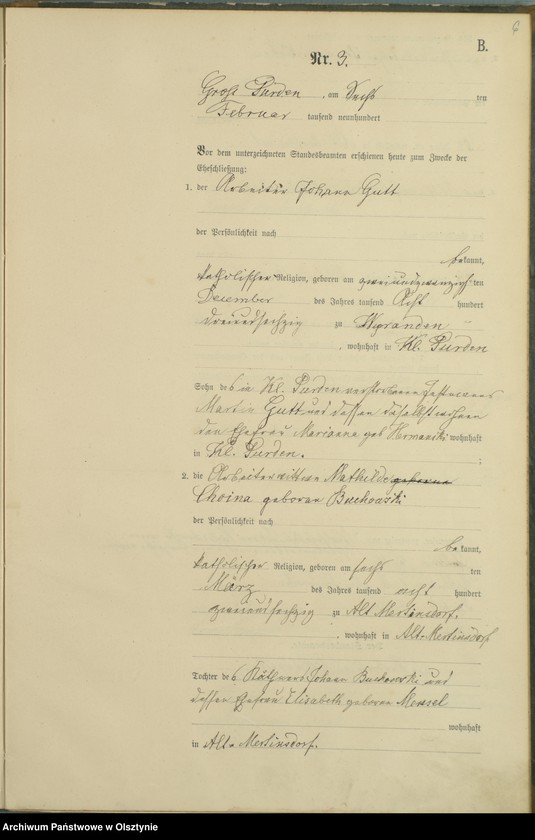 6
B.
Nr. 3.
Groß Purden, am Sechs ten
Februar tausend neunhundert
Vor dem unterzeichneten Standesbeamten erschienen heute zum Zwecke der
Eheschließung:
1. der Arbeiter Johann Gutt
der Persönlichkeit nach
bekannt,
katholischer Religion, geboren am zweiundzwanzig ten
December des Jahres tausend Acht hundert
dreiundsechzig zu
, wohnhaft in Kl. Purden
Sohn des in Kl. Purden verstorbenen
Martin Gutt und dessen daselbst wohnen
den Ehefrau Marianna geb. wohnhaft
in Kl. Purden. ;
2. die Arbeiterwittwe Mathilde geborene
Choina geboren Buchowski
der Persönlichkeit nach
bekannt,
katholischer Religion, geboren am sechs ten
März des Jahres tausend acht hundert
zweiundsechzig zu Alt Mertinsdorf.
, wohnhaft in Alt-Mertinsdorf
Tochter des Käthners Johann Buchowski und
dessen Ehefrau Elisabeth geboren Mensel
wohnhaft
in Alt-Mertinsdorf.
Archiwum Państwowe w Olsztynie